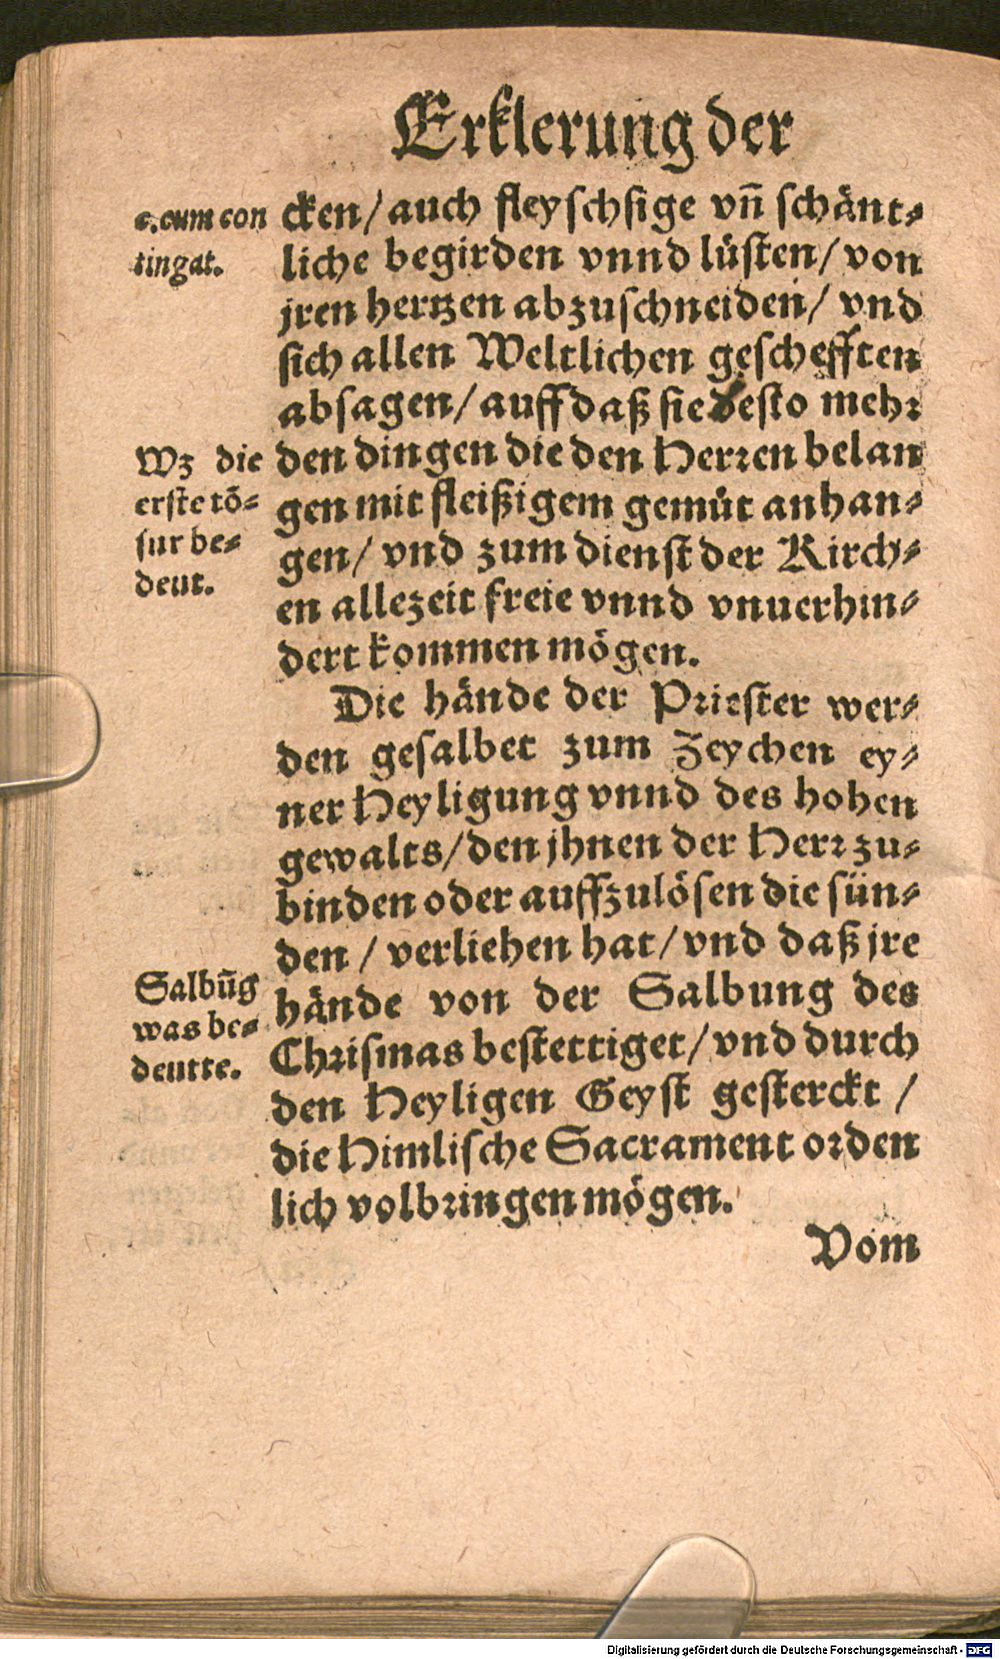 Erklerung der
c. cum con
tingat.
cken/auch fleyschsige vñ schänt-
liche begirden vnnd lüsten/von
jren hertzen abzuschneiden/ vnd
sich allen Weltlichen geschefften
absagen/auff daß sie desto mehr
Wz die
erste tō-
sur be-
deut.
den dingen die den Herren belan
gen mit fleißigem gemüt anhan-
gen/ vnd zum dienst der Kirch-
en allezeit freie vnnd vnuerhin-
dert kommen mögen.
Die hände der Priester wer-
den gesalbet zum Zeychen ey-
ner Heyligung vnnd des hohen
gewalts/den jhnen der Herr zu-
binden oder auffzulösen die sün-
den / verliehen hat/vnd daß jre
Salbūg
was be-
deutte.
hände von der Salbung des
Chrismas bestettiget/vnd durch
den Heyligen Geyst gesterckt /
die Himlische Sacrament orden
lich volbringen mögen.
Vom
Digitalisierung gefördert durch die Deutsche Forschungsgemeinschaft - DFG